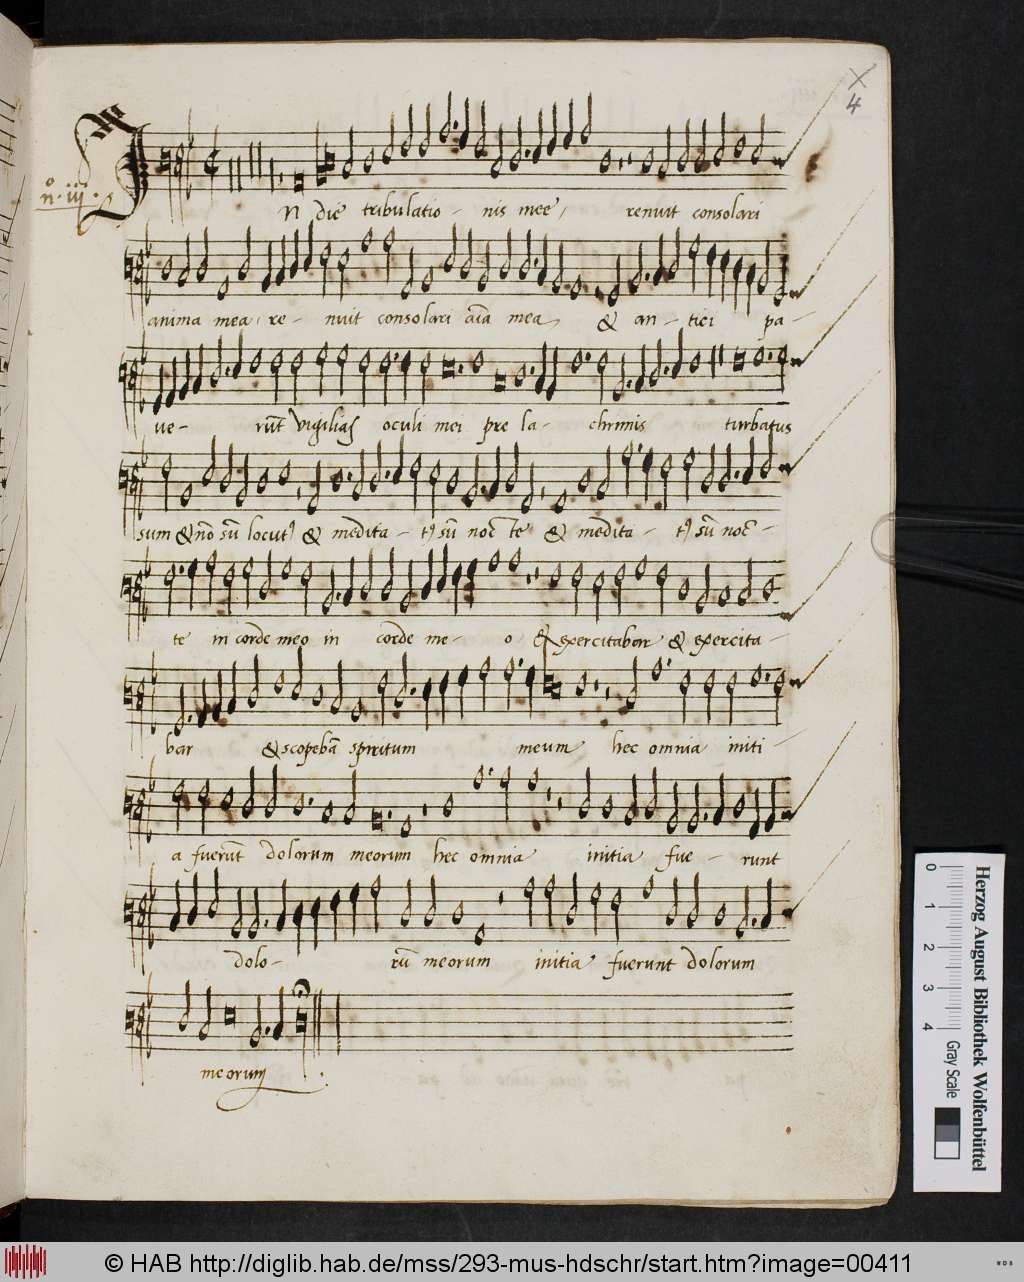 X
4
n. iij.
IN die tribulatio - nis mee, renuit consolari
anima mea, re - nuit consolari aīa mea, & an - tici pa -
ve - rūt vigilias oculi mei pre la - chrimis turbatus
sum & nō sū locut9 & medita - t9 sū noct te & medita - t9 sū noct -
te in corde meo in corde me - o & exercitabar & exercita -
bar & scopebā spiritum meum hec omnia initi -
a fuerūt dolorum meorum hec omnia initia fue - runt
dolo - rū meorum initia fuerunt dolorum
meorum
0 1 2 3 4
Herzog August Bibliothek Wolfenbüttel
Gray Scale
© HAB http://diglib.hab.de/mss/293-mus-hdschr/start.htm?image=00411